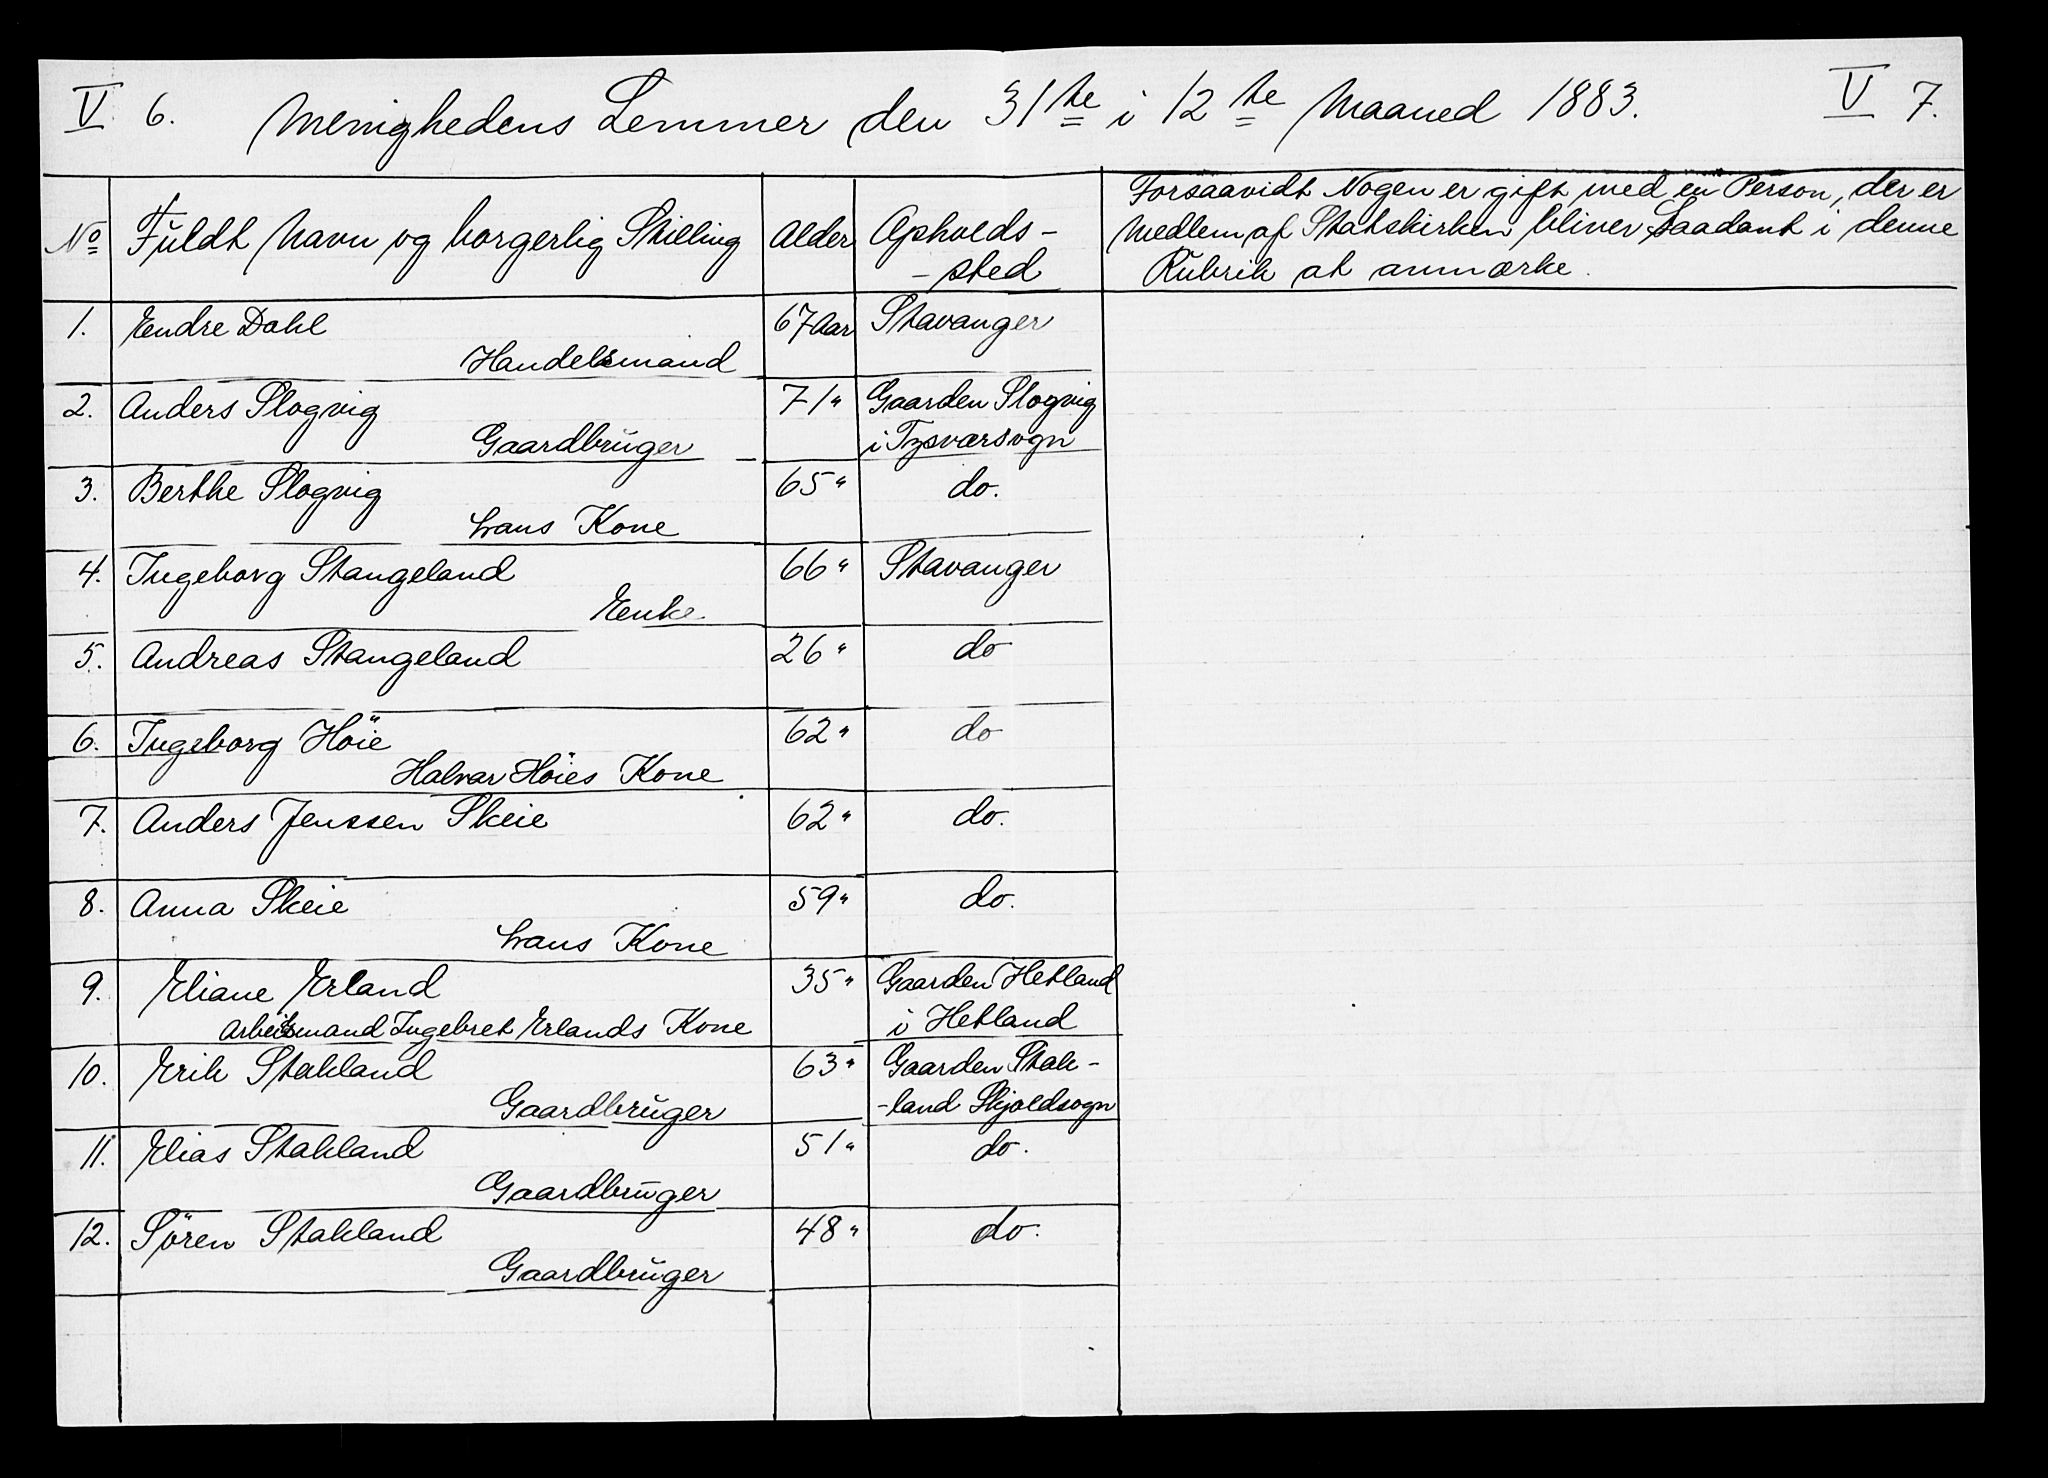 V 6. Menighedens Lemmer den 31te i 12te Maaned 1883. V 7.
No Fuldt Navn og borgerlig Stilling Alder Opholds-
-sted
Forsaavidt Nogen er gift med en Person, der er
Medlem af Statskirken bliver Saadant i denne
Rubrik at anmærke.
1. Endre Dahl 67 Aar Stavanger
Handelsmand
2. Anders Slogvig 71 " Gaarden Slogvig
Gaardbruger i Tysværsogn
3. Berthe Slogvig 65 " do.
hans Kone
4. Ingeborg Stangeland 66 " Stavanger
Enke
5. Andreas Stangeland 26 " do
6. Ingeborg Höie 62 " do
Halvar Höies Kone
7. Anders Jenssen Skeie 62 " do.
8. Anna Skeie 59 " do.
hans Kone
9. Eliane Erland 35 " Gaarden Hetland
Arbeidsmand Ingebret Erlands Kone i Hetland
10. Erik Stakland 63 " Gaarden Stak-
Gaardbruger -land Skjoldsogn
11. Elias Stakland 51 " do.
Gaardbruger
12. Sören Stakland 48 " do.
Gaardbruger